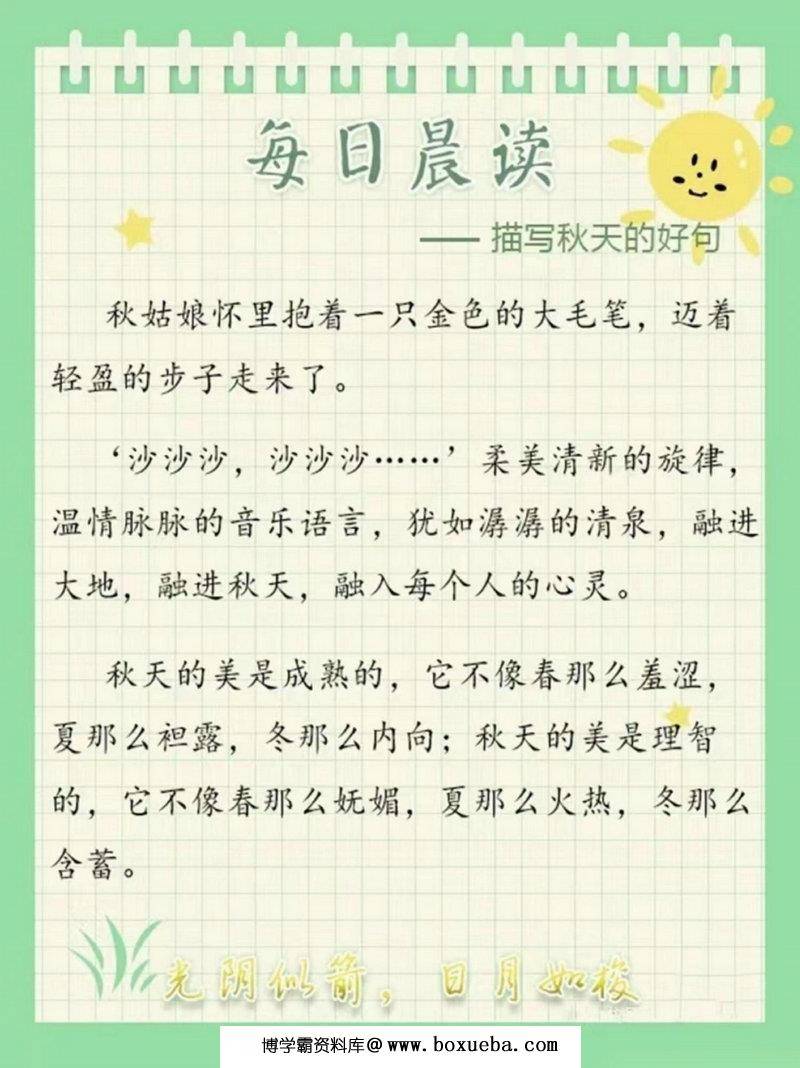 每日晨读
—— 描写秋天的好句
秋姑娘怀里抱着一只金色的大毛笔，迈着
轻盈的步子走来了。
‘沙沙沙，沙沙沙……’柔美清新的旋律，
温情脉脉的音乐语言，犹如潺潺的清泉，融进
大地，融进秋天，融入每个人的心灵。
秋天的美是成熟的，它不像春那么羞涩，
夏那么袒露，冬那么内向；秋天的美是理智
的，它不像春那么妩媚，夏那么火热，冬那么
含蓄。
光阴似箭，日月如梭
博学霸资料库@ www.boxueba.com